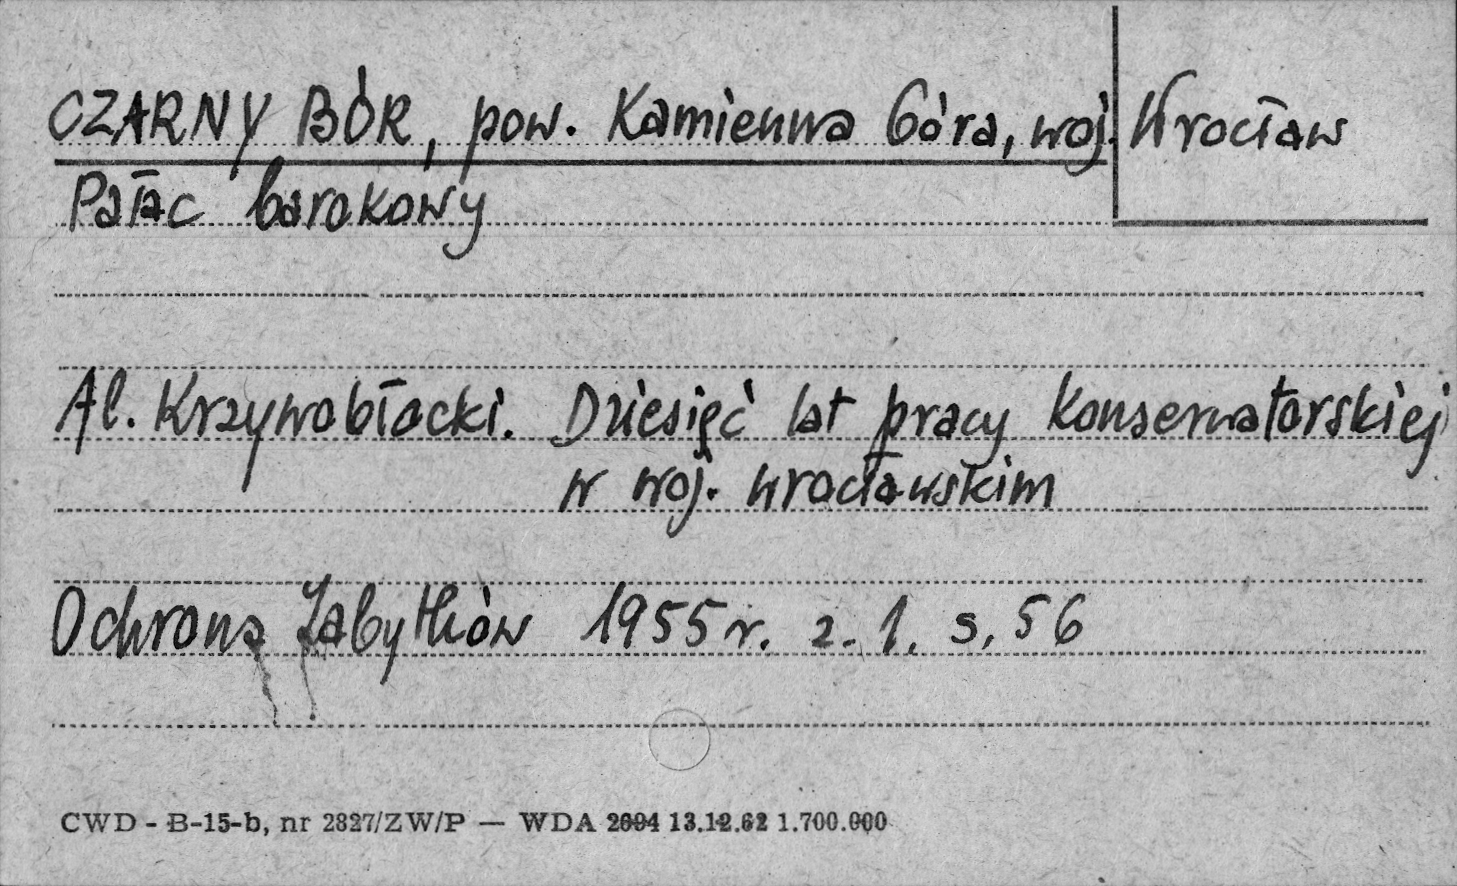 CZARNY BÓR, pow. Kamienna Góra, woj. Wrocław
Pałac barokowy
Al. Krzywobłocki. Dziesięć lat pracy konserwatorskiej
w woj. wrocławskim
Ochrona Zabytków 1955 r. z. 1. s. 56
CWD - B-15-b, nr 2827/ZW/P — WDA 2094 13.12.62 1.700.000